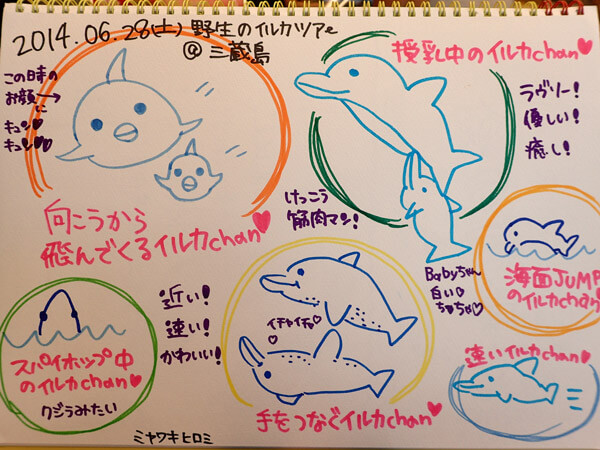 2014.06.28(土) 野生のイルカツアー
@ 三蔵島
この日時の
お顔→に
キュン♡
キュン♡♡
向こうから
飛んでくるイルカchan♥
授乳中のイルカchan♥
ラヴリー!
優しい!
癒し!
けっこう
筋肉マン!
Babyちゃん
白い♡
ちゅちゅ♡
海面JUMP
のイルカchan
スパイホップ中
のイルカchan♥
クジラみたい
近い!
速い!
かわいい!
イチャイチャ♡
♡
手をつなぐイルカchan♥
速いイルカchan♥
ミヤワキヒロミ